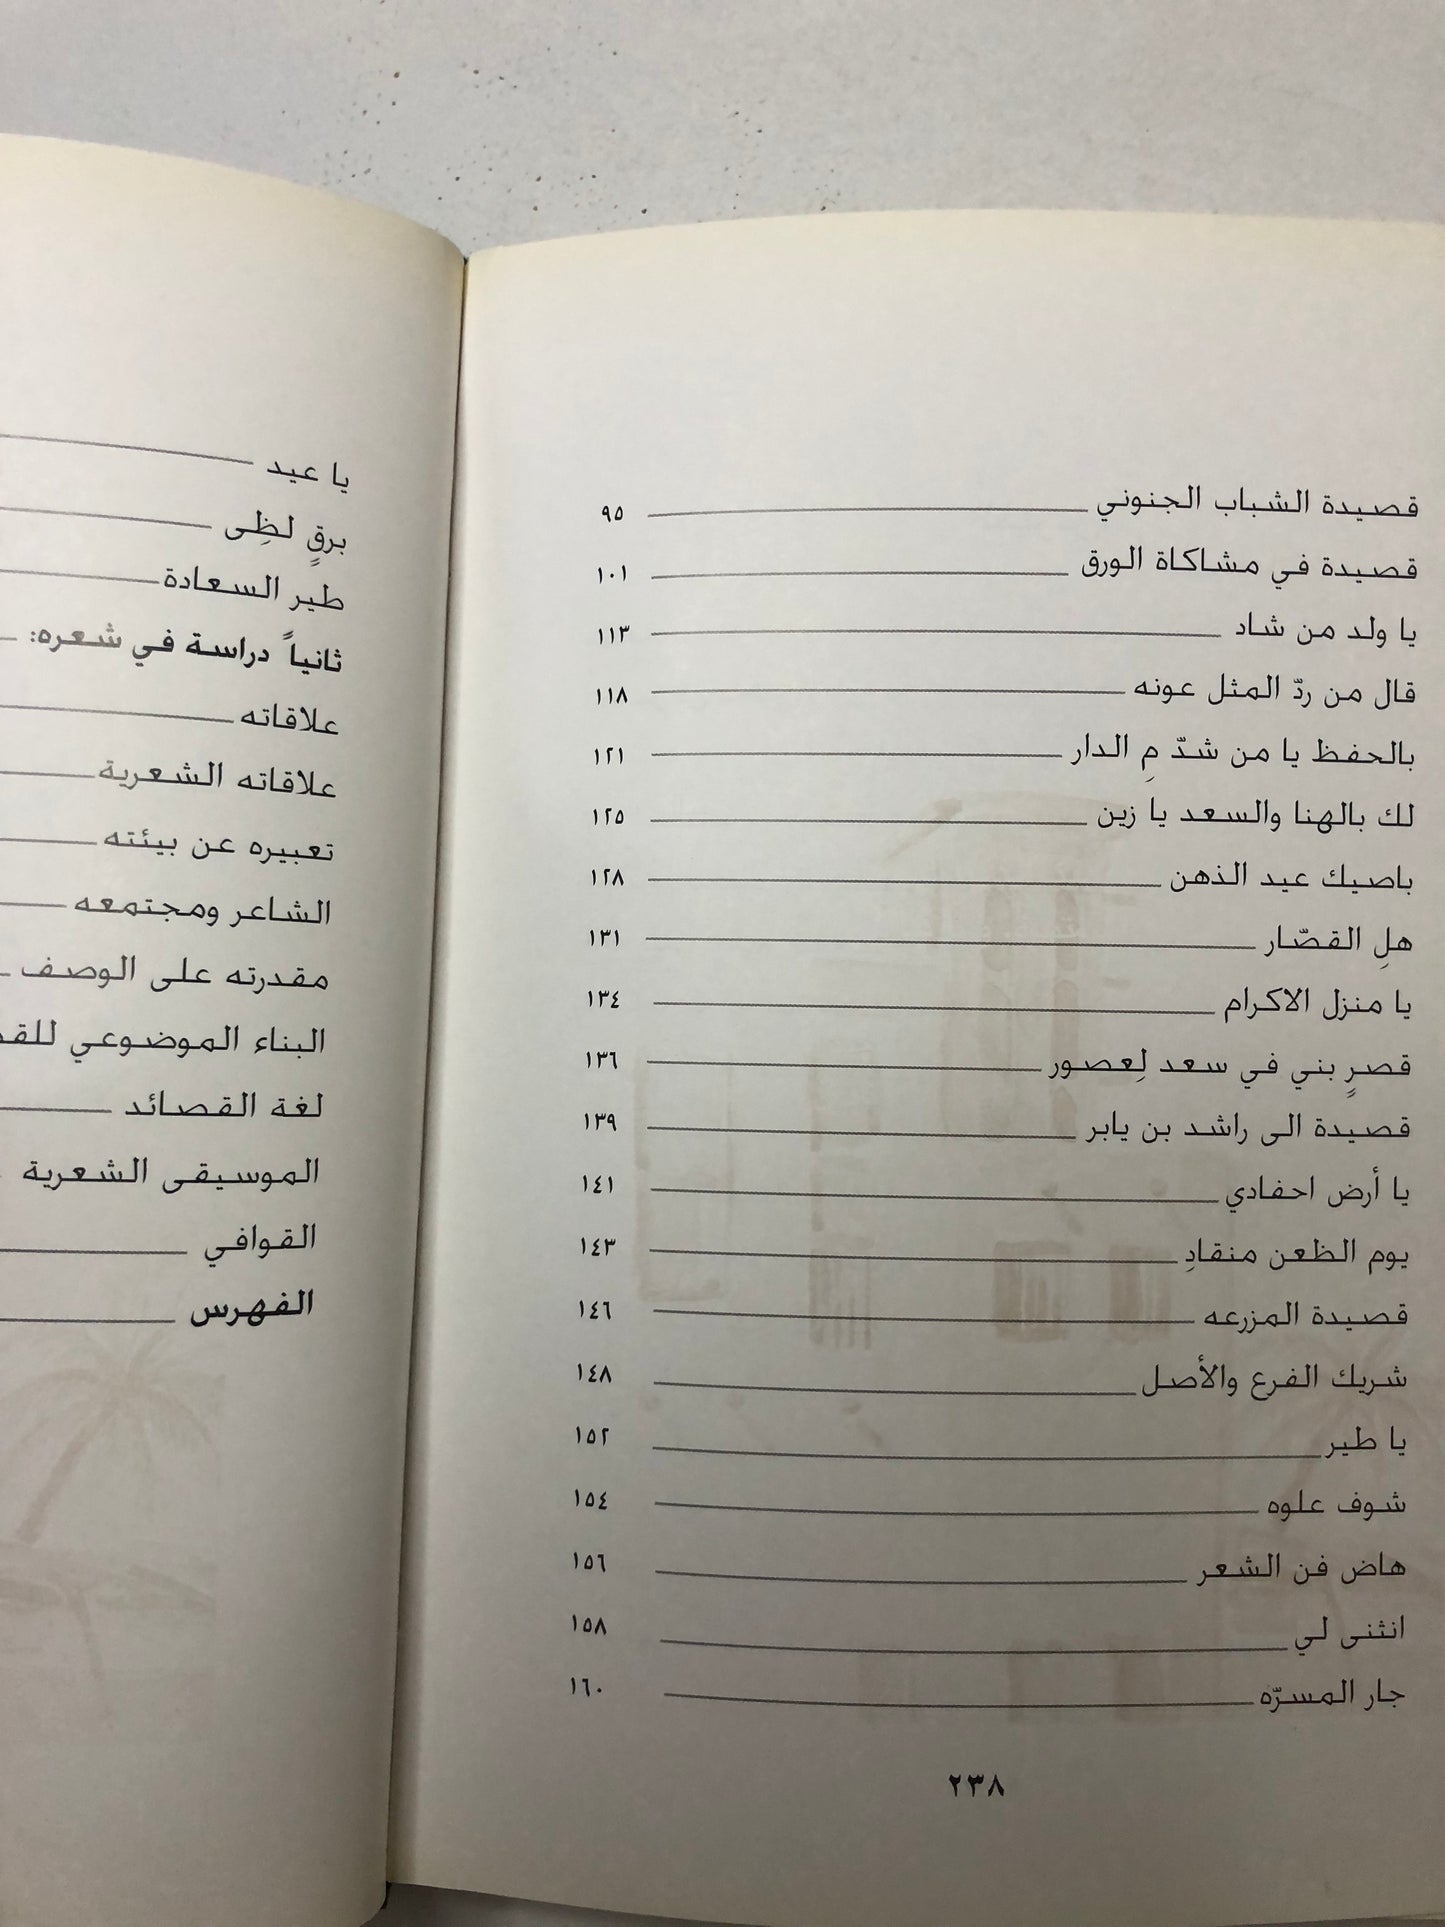 قصيدة الشباب الجنوني ٩٥
قصيدة في مشاكاة الورق ١٠١
يا ولد من شاد ١١٣
قال من ردّ المثل عونه ١١٨
بالحفظ يا من شدّ مِ الدار ١٢١
لك بالهنا والسعد يا زين ١٢٥
باصيك عيد الذهن ١٢٨
هلِ القصّار ١٣١
يا منزل الاكرام ١٣٤
قصرٍ بني في سعد لِعصور ١٣٦
قصيدة الى راشد بن يابر ١٣٩
يا أرض احفادي ١٤١
يوم الظعن منقادِ ١٤٣
قصيدة المزرعه ١٤٦
شريك الفرع والأصل ١٤٨
يا طير ١٥٢
شوف علوه ١٥٤
هاض فن الشعر ١٥٦
انثنى لي ١٥٨
جار المسرّه ١٦٠
٢٣٨
يا عيد
برقٍ لظِى
طير السعادة
ثانياً دراسة في شعره:
علاقاته
علاقاته الشعرية
تعبيره عن بيئته
الشاعر ومجتمعه
مقدرته على الوصف
البناء الموضوعي
لغة القصائد
الموسيقى الشعرية
القوافي
الفهرس